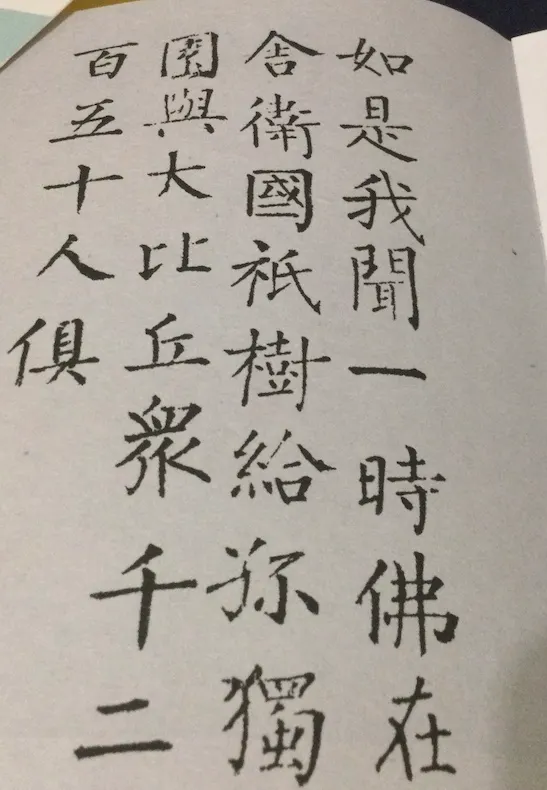 如是我聞一時佛在
舍衛國祇樹給孤獨
園與大比丘眾千二
百五十人俱